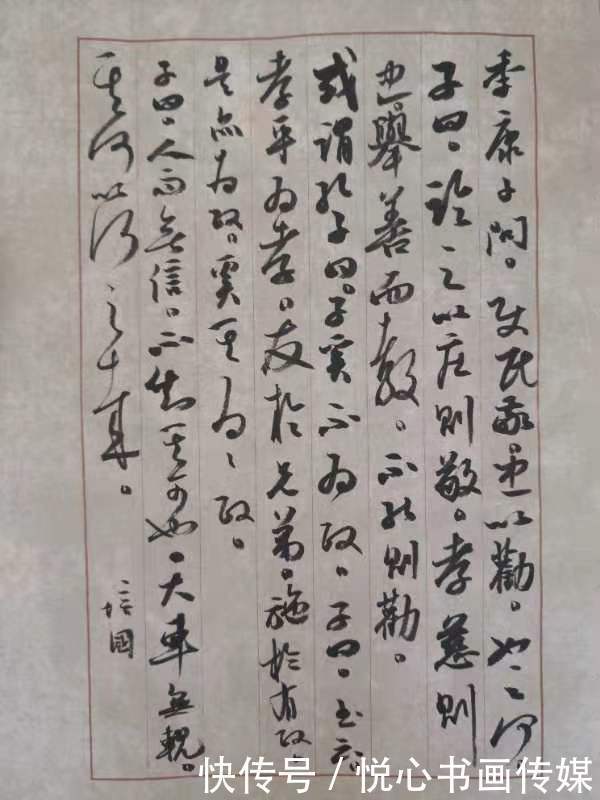 季康子問。使民敬。忠以勸。如之何。
子曰。臨之以庄則敬。孝慈則
忠。舉善而教。不能則勸。
或謂孔子曰。子奚不為政。子曰。書云。
孝乎为孝。友於兄弟。施於有政。
是亦为政。奚其为々政。
子曰。人而無信。不知其可也。大車無輗。
其何以行之哉。
培國
快传号 / 悦心书画传媒